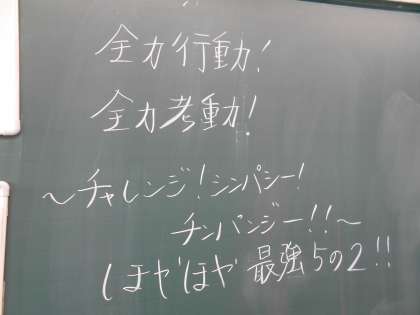 全力行動!
全力考動!
～チャレンジ!シンパシー!
チンパンジー!!～
ほやほや最強5の2!!